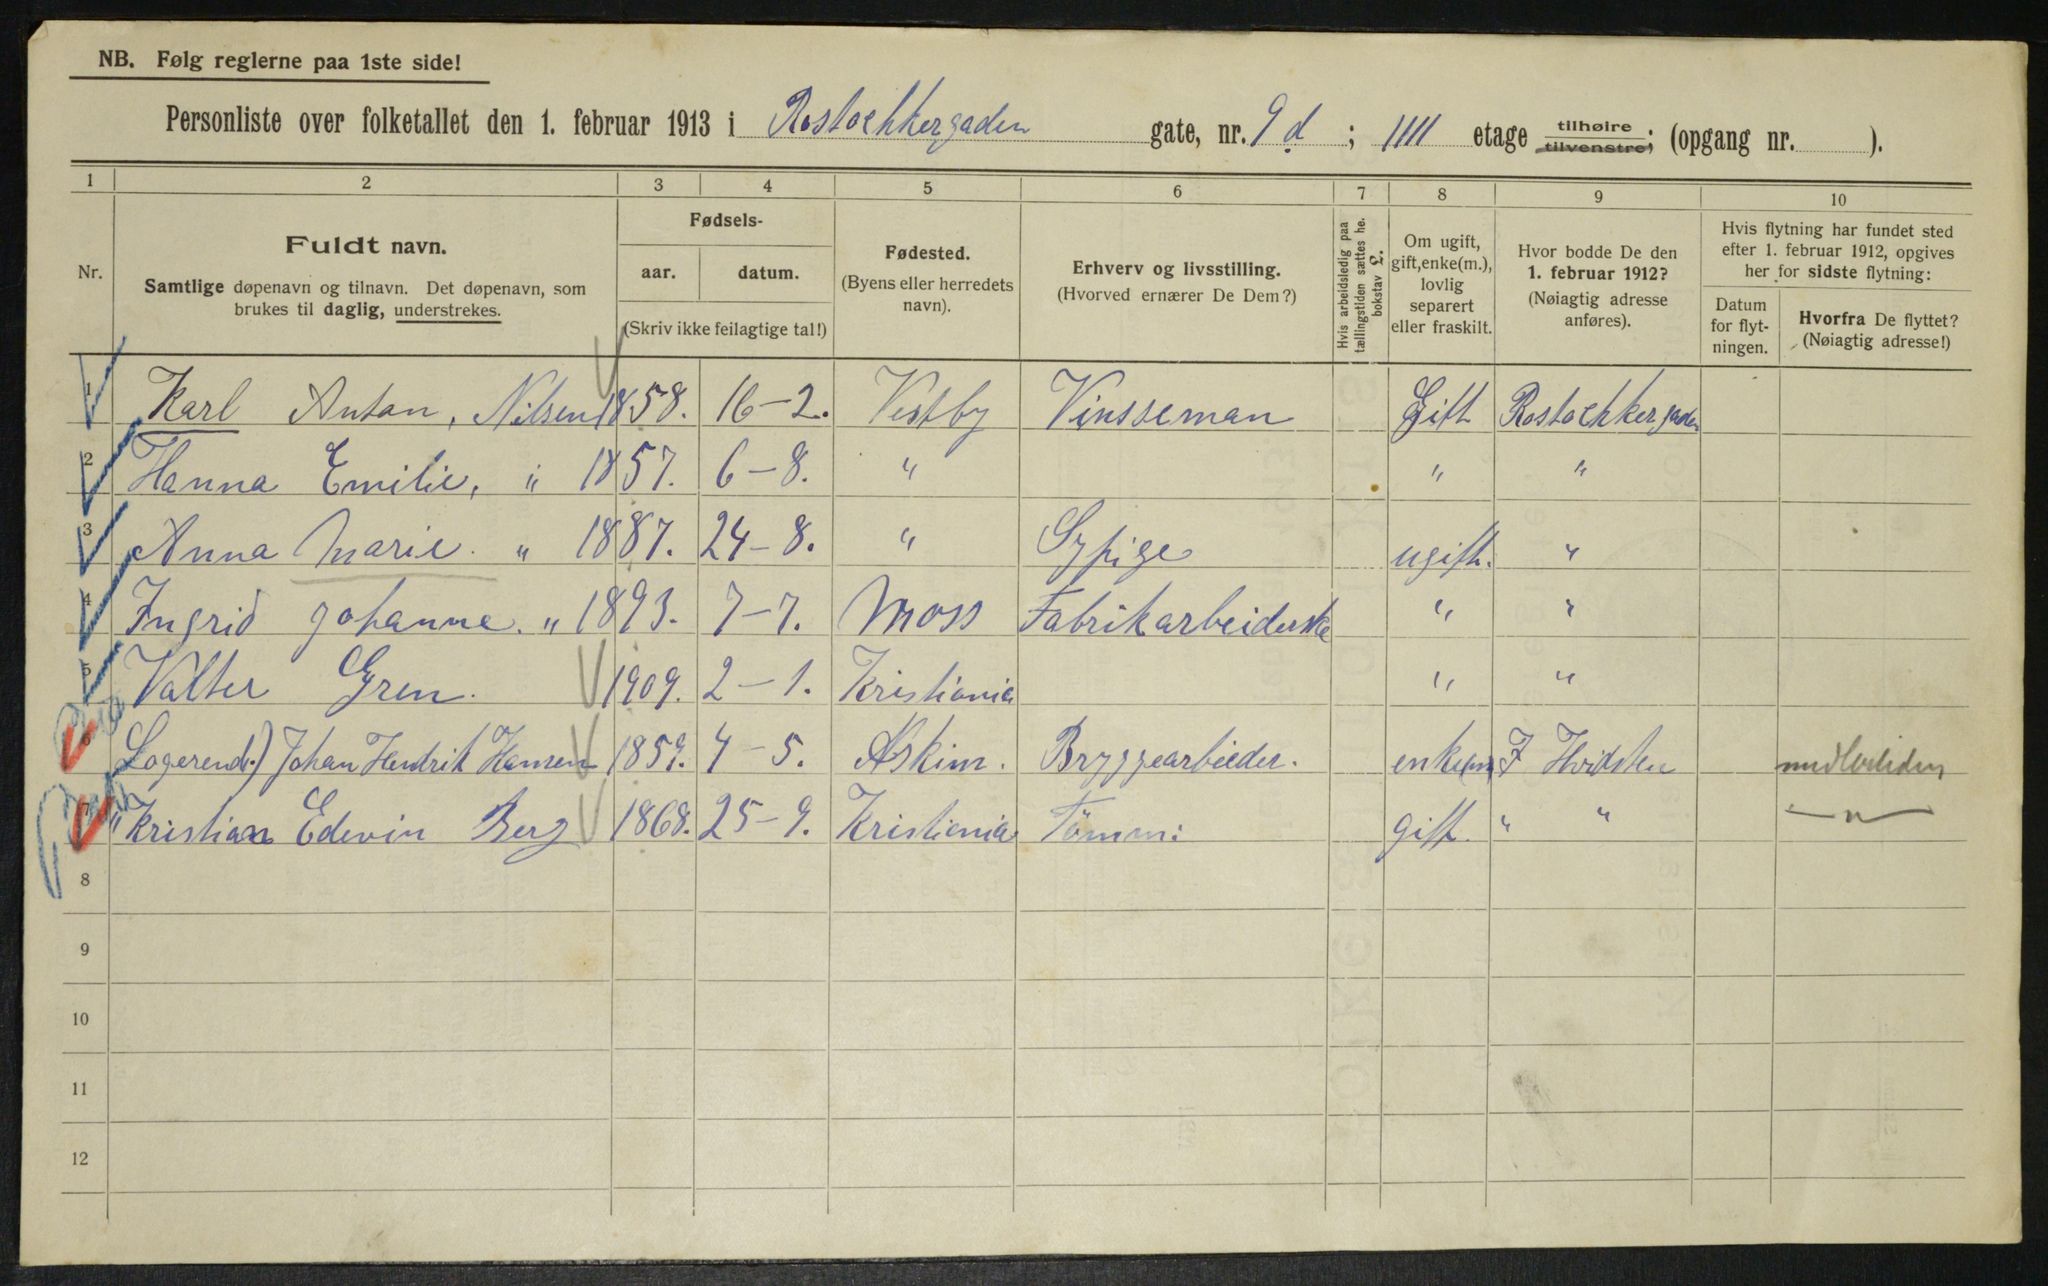 NB. Følg reglerne paa 1ste side!
Personliste over folketallet den 1. februar 1913 i Rostochkergaden gate, nr. 9 d ; IIII etage tilhøire tilvenstre; (opgang nr. ).
1 2 3 4 5 6 7 8 9 10
Nr.
Fuldt navn.
Samtlige døpenavn og tilnavn. Det døpenavn, som
brukes til daglig, understrekes.
Fødsels-
aar. datum.
(Skriv ikke feilagtige tal!)
Fødested.
(Byens eller herredets
navn).
Erhverv og livsstilling.
(Hvorved ernærer De Dem?)
Hvis arbeidsledig paa
tællingstiden sættes he.
bokstav L.
Om ugift,
gift, enke(m.),
lovlig
separert
eller fraskilt.
Hvor bodde De den
1. februar 1912?
(Nøiagtig adresse
anføres).
Hvis flytning har fundet sted
efter 1. februar 1912, opgives
her for sidste flytning:
Datum
for flyt-
ningen.
Hvorfra De flyttet?
(Nøiagtig adresse!)
1 Karl Anton, Nilsen 1858. 16-2. Vestby Vinsseman Gift Rostochkergaden
2 Hanna Emilie, " 1857. 6-8. " " "
3 Anna Marie. " 1887. 24-8. " Sypige ugift. "
4 Ingrid Johanne. " 1893. 7-7. Moss Fabrikarbeiderske " "
5 Valter Gren. 1909. 2-1. Kristiania " "
6 Logerende) Johan Hendrik Hansen 1859. 4-5. Askim. Bryggearbeider. enkem F Hvidsten
7 " Kristian Edevin Berg 1868. 25-9. Kristiania Tömm: gift. " " -"-
8
9
10
11
12